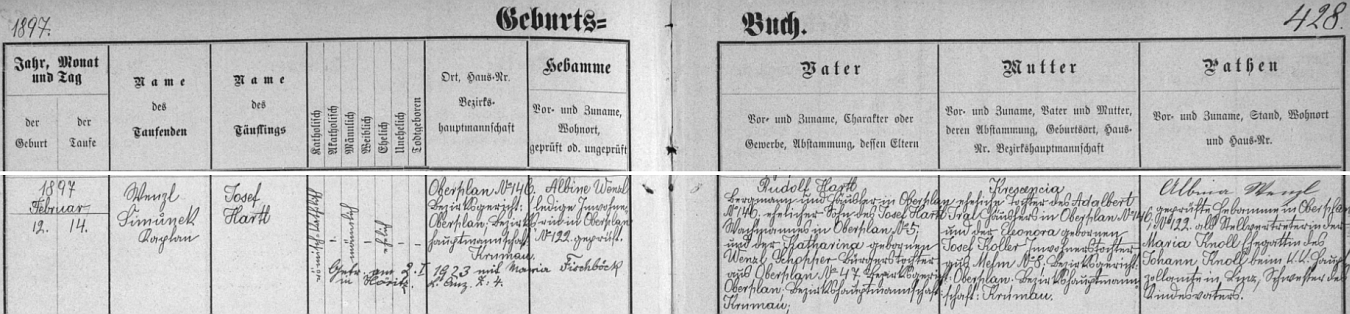 1897.
Geburts=
Buch.
428.
Jahr, Monat
und Tag
der
Geburt
der
Taufe
Name
des
Taufenden
Name
des
Täuflings
Katholisch
Akatholisch
Männlich
Weiblich
Ehelich
Unehelich
Todtgeboren
Ort, Haus-Nr.
Bezirks-
hauptmannschaft
Hebamme
Vor- und Zuname,
Wohnort,
geprüft od. ungeprüft
Vater
Vor- und Zuname, Charakter oder
Gewerbe, Abstammung, dessen Eltern
Mutter
Vor- und Zuname, Vater und Mutter,
deren Abstammung, Geburtsort, Haus-
Nr. Bezirkshauptmannschaft
Pathen
Vor- und Zuname, Stand, Wohnort
und Haus-Nr.
1897
Februar
12.
14.
Wenzl
Šimůnek
Kaplan
Josef
Hartl
männlich
ehelich
Oberplan No 146.
Bezirksgericht:
Oberplan, Bezirks
hauptmannschaft
Krumau.
Albine Wenzl
ledige
in Oberplan
No 122. geprüft.
Getr. am 2. I
1923 mit Maria Fischböck
in Höritz.
Rudolf Hartl
Bergmann und Häusler in Oberplan
No 146. ehelicher Sohn des Josef Hartl
Wachmannes in Oberplan No 5;
und der Katharina gebornen
Wenzl Schopper Bürgerstochter
aus Oberplan No 47. Bezirksgericht
Oberplan. Bezirkshauptmannschaft:
Krumau,
Krescencia
eheliche Tochter des Adalbert
Häuslers in Oberplan No 146.
und der Eleonora gebornen
Josef Koller Inwohnerstochter
aus No 8, Bezirksgericht
Oberplan. Bezirkshauptmann
schaft: Krumau.
Albina Wenzl
geprüfte Hebamme in Oberplan
No 122. als Stellvertreterin der
Maria Knoll Gegattin des
Johann Knoll beim k.k. Haupt
zollamte in Linz, Schwester des
Kindesvaters.